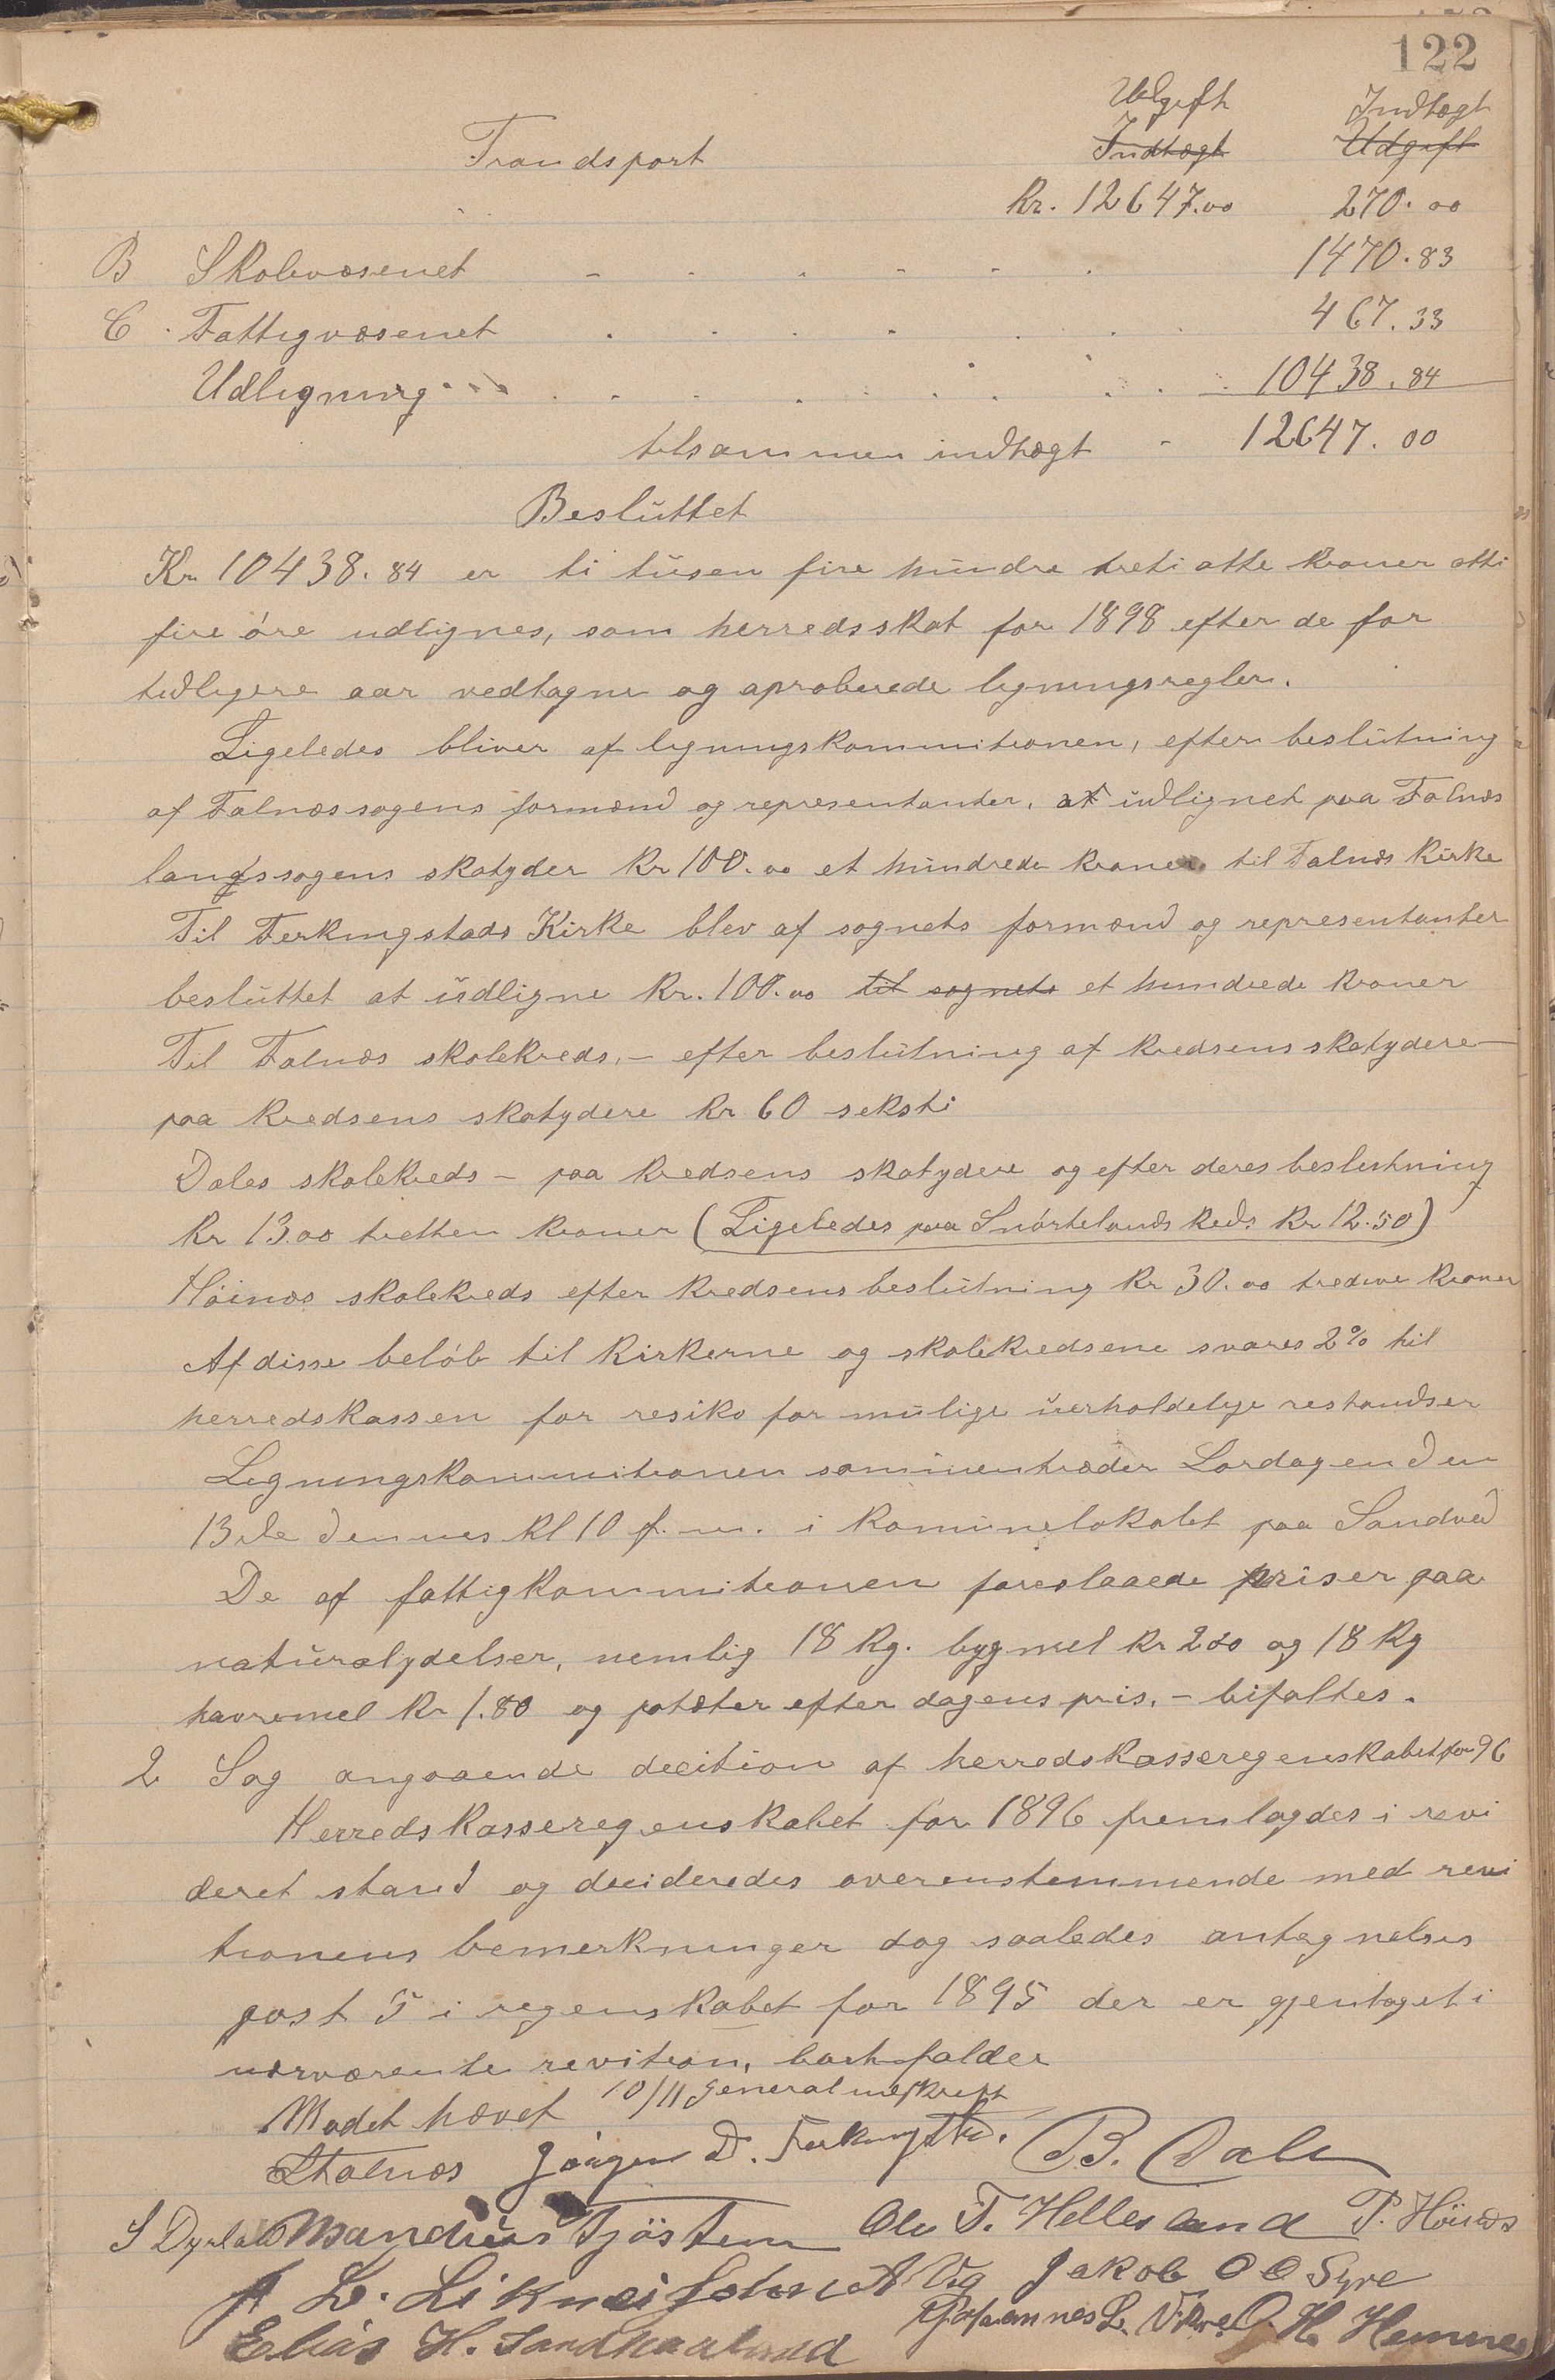 122
Udgift Indtægt
Trandsport Indtægt Udgift
Kr. 12647.00 270.00
B Skolevæsenet - - - - - - 1470.83
C. Fattigvæsenet . . . . . . 467.33
Udligning . . . . . . . . 10438.84
tilsammen indtægt - 12647.00
Besluttet
Kr 10438.84 er ti tusen fire hundre treti otte kroner otti
fire øre udlignes, som herredsskat for 1898 efter de for
tidligere aar vedtagne og aproberede ligningsregler.
Ligeledes bliver af ligningskommitionen, efter beslutning
af Falnæssogens formænd og representanter, at udlignet paa Falnæs
langssogens skatyder Kr 100.00 et hundrede kroner til Falnæs Kirke
Til Ferkingstads Kirke blev af sognets formænd og representanter
besluttet at udligne Kr. 100.00 til sognets et hundrede kroner
Til Falnæs skolekreds, - efter beslutning af kredsens skatydere -
paa kredsens skatydere Kr 60 seksti
Dales skolekreds - paa kredsens skatydere og efter deres beslutning
Kr 13.00 tretten kroner (Ligeledes paa Snørtelands Keds Kr 12.50)
Høinæs skolekreds efter kredsens beslutning Kr 30.00 tredive kroner
Af disse beløb til kirkerne og skolekredsene svares 2% til
herredskassen for resiko for mulige uerholdelige restandser
Ligningskommitionen sammentræder Lørdagen den
13de dennes kl 10 f.m. i komunelokalet paa Sandved
De af fattigkommitionen foreslaaede priser paa
naturalydelser, nemlig 18 Kg. bygmel Kr 2.00 og 18 Kg
havremel Kr 1.80 og potæter efter dagens pris, - bifaltes.
2 Sag angaaende decition af herredskasseregenskabet for 96
Herredskasseregenskabet for 1896 fremlagdes i revi
deret stand og decideredes overenstemmende med revi
tionens bemerkninger dog saaledes antegnelses
post 5 i regenskabet for 1895 der er gjentaget i
nærværente revition, bortfalder
Mødet hævet 10/11
Falnæs Jørgen D. Ferkingstad. B. Dale
S Dyrland Mandius Tjøstem Ole T. Hellesland P. Høinæs
A L. Liknes A Vig Jakob O O Syre
Elias H. Sandhaaland Johannes L. Vikre O. H. Hemnes